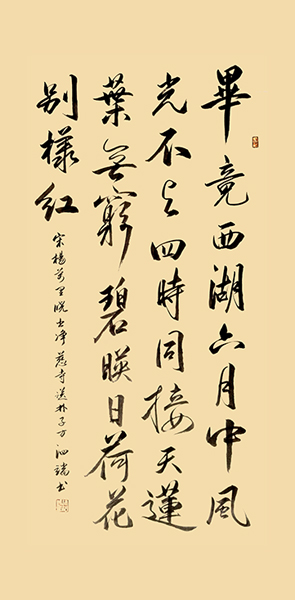 畢竟西湖六月中風
光不与四時同接天蓮
葉無窮碧暎日荷花
别樣紅
宋楊萬里曉出淨慈寺送林子方 书